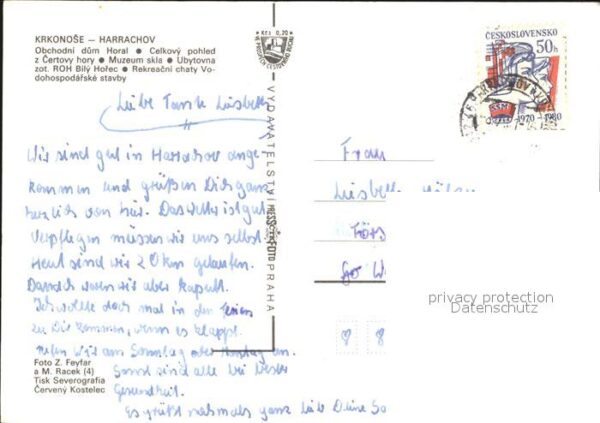 KRKONOŠE – HARRACHOV
Obchodní dům Horal • Celkový pohled
z Čertovy hory • Muzeum skla • Ubytovna
zot. ROH Bílý Hořec • Rekreační chaty Vo-
dohospodářské stavby
Kčs 0,20
VE PROSPĚCH CESTOVNÍHO RUCHU
ČESKOSLOVENSKO
50h
1970-1980
Liebe Tante Liesbeth
Wir sind gut in Harrachov ange-
kommen und grüßen Dich ganz
herzlich von hier. Das Wetter ist gut
Verpflegen müssen wir uns selbst.
Heut sind wir 20km gelaufen.
Danach waren wir aber kaputt.
Ich wollte doch mal in den Ferien
zu Dir kommen, wenn es klappt.
rufen wir am Sonntag oder Montag an.
Sonst sind alle bei bester
Gesundheit.
Es grüßt nochmals ganz lieb Deine
VYDAVATELSTVÍ PRESSFOTO PRAHA
Frau
Liesbeth
privacy protection
Datenschutz
8 8
Foto Z. Feyfar
a M. Racek (4)
Tisk Severografia
Červený Kostelec